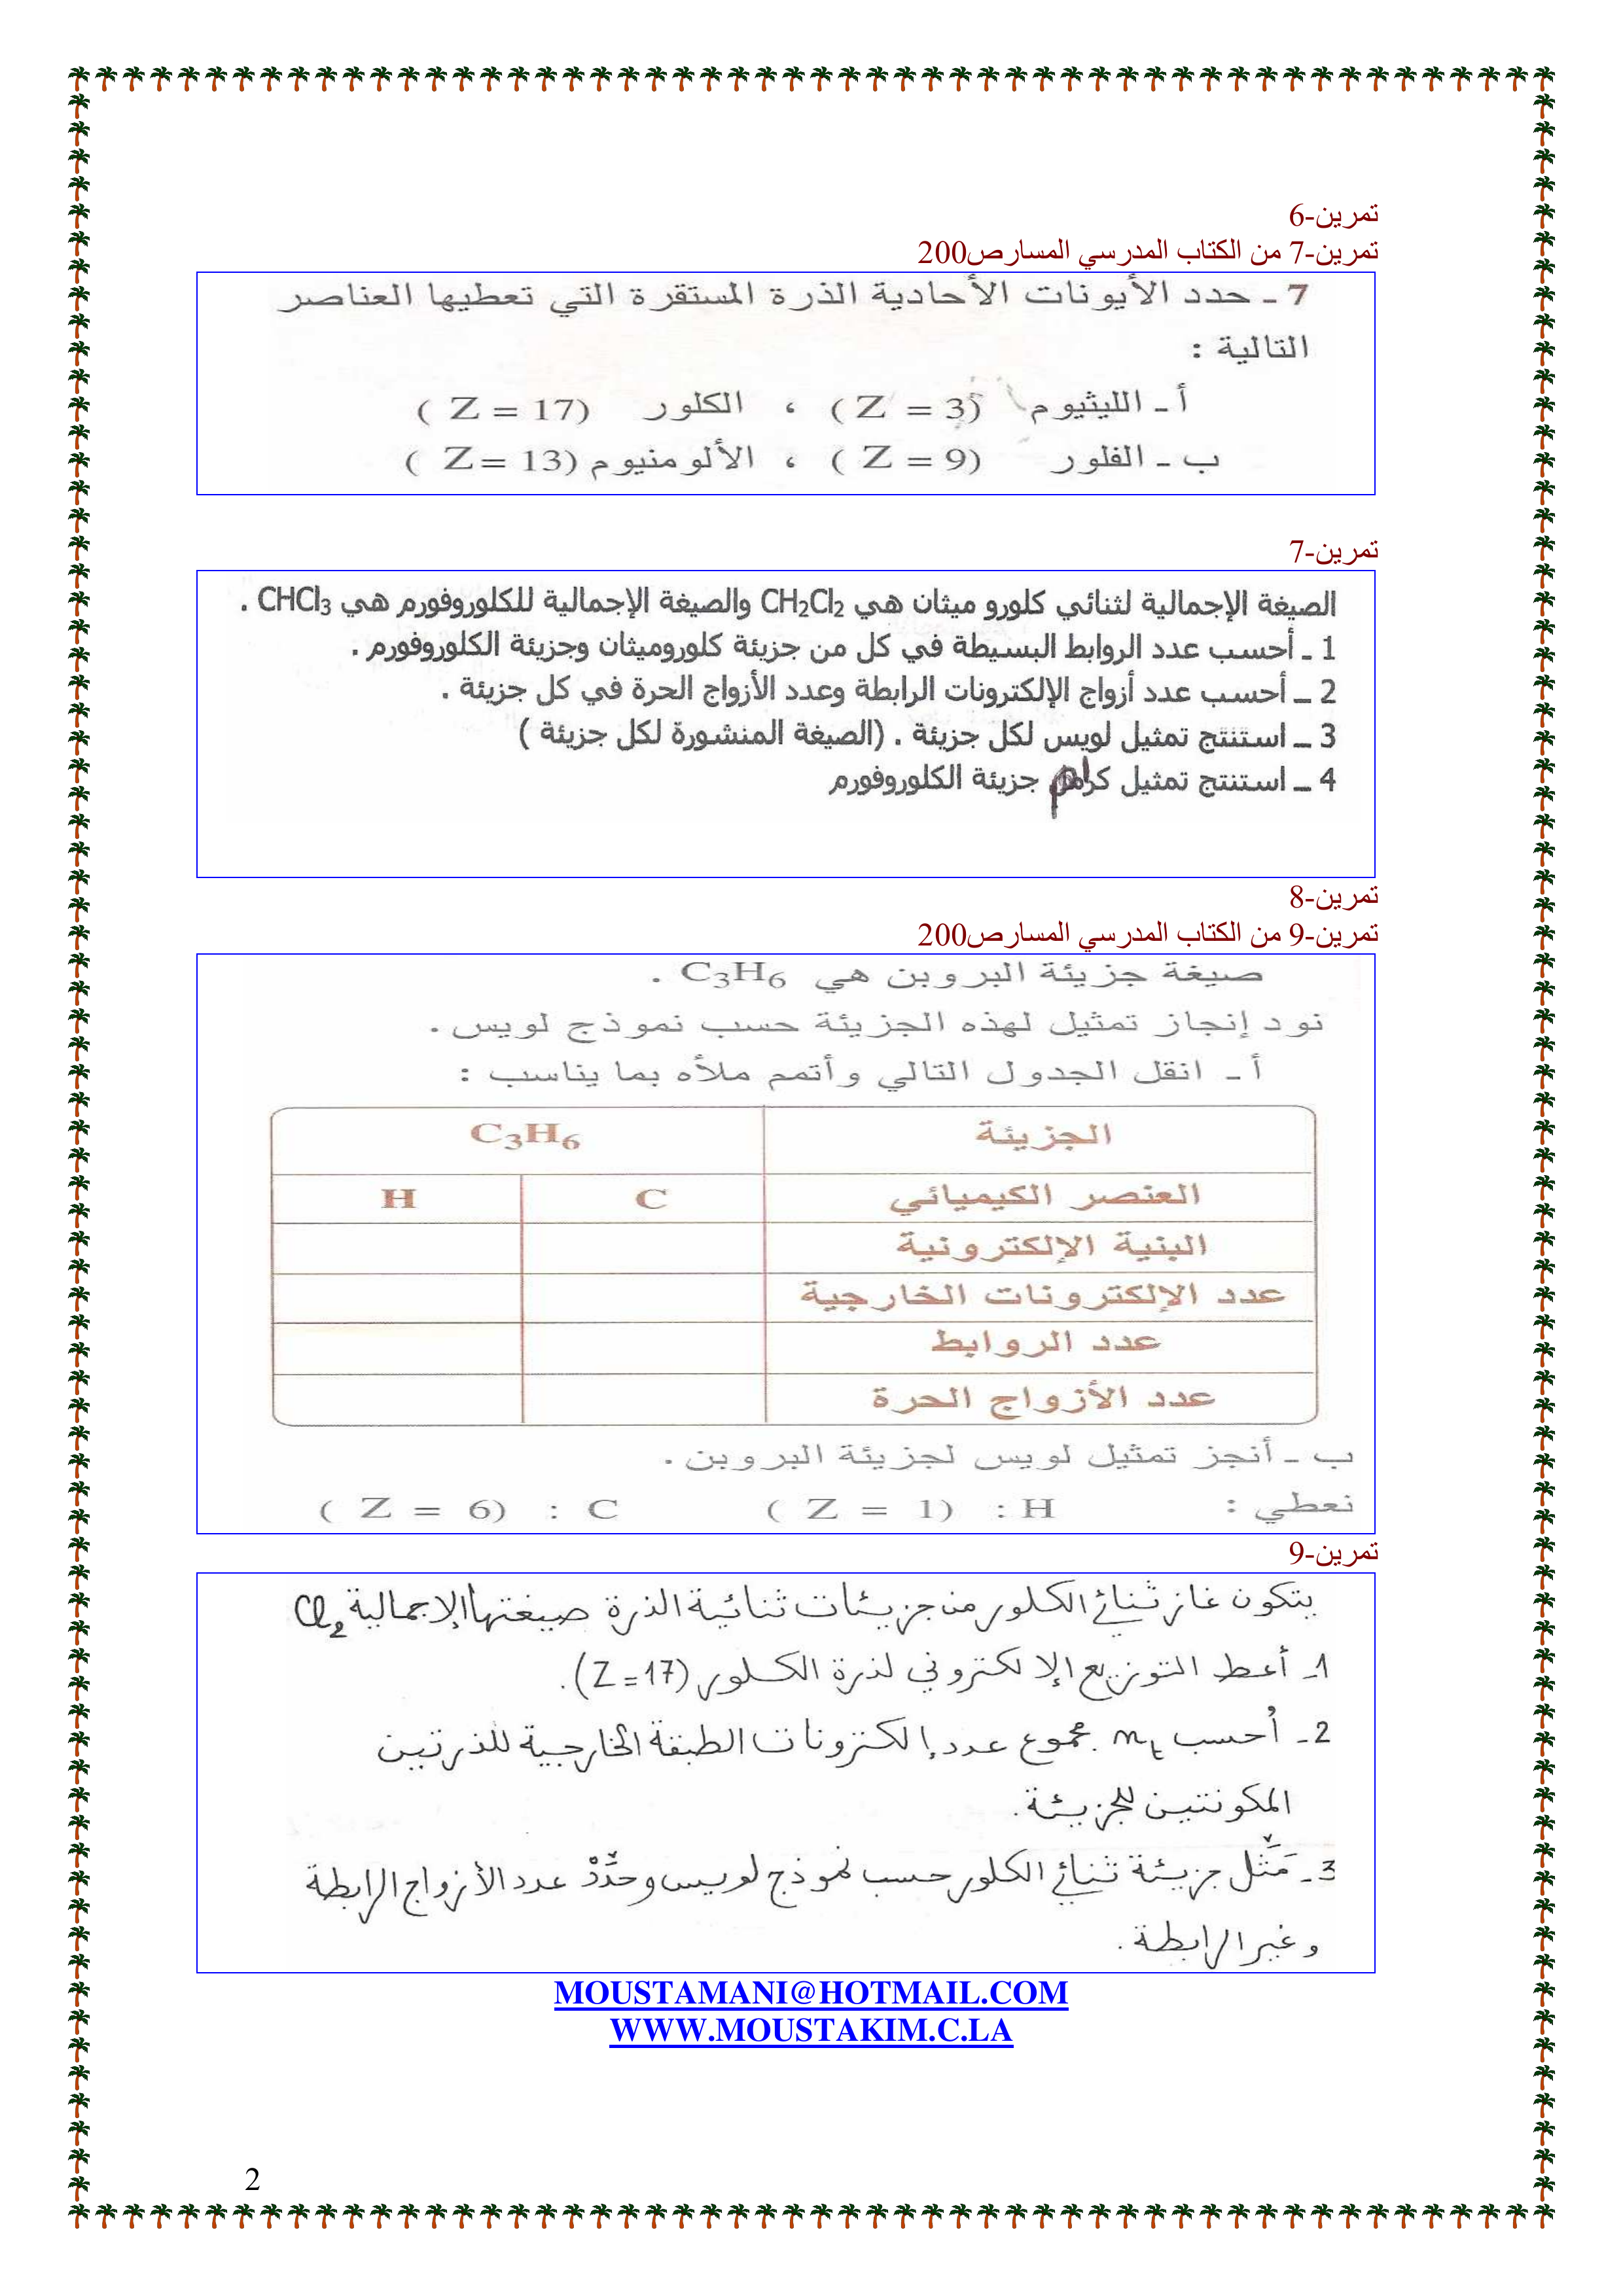 تمرين-6
تمرين-7 من الكتاب المدرسي المسارص200
7 ـ حدد الأيونات الأحادية الذرة المستقرة التي تعطيها العناصر
التالية :
أ ـ الليثيوم (Z = 3) ، الكلور (Z = 17)
ب ـ الفلور (Z = 9) ، الألومنيوم (Z= 13)
تمرين-7
الصيغة الإجمالية لثنائي كلورو ميثان هي CH₂Cl₂ والصيغة الإجمالية للكلوروفورم هي CHCl₃ .
1 ـ أحسب عدد الروابط البسيطة في كل من جزيئة كلوروميثان وجزيئة الكلوروفورم .
2 ـ أحسب عدد أزواج الإلكترونات الرابطة وعدد الأزواج الحرة في كل جزيئة .
3 ـ استنتج تمثيل لويس لكل جزيئة . (الصيغة المنشورة لكل جزيئة )
4 ـ استنتج تمثيل كرام جزيئة الكلوروفورم
تمرين-8
تمرين-9 من الكتاب المدرسي المسارص200
صيغة جزيئة البروبن هي C₃H₆ .
نود إنجاز تمثيل لهذه الجزيئة حسب نموذج لويس .
أ ـ انقل الجدول التالي وأتمم ملأه بما يناسب :
الجزيئة C₃H₆
العنصر الكيميائي C H
البنية الإلكترونية
عدد الإلكترونات الخارجية
عدد الروابط
عدد الأزواج الحرة
ب ـ أنجز تمثيل لويس لجزيئة البروبن .
نعطي : H : (Z = 1) C : (Z = 6)
تمرين-9
يتكون غاز ثنائي الكلور من جزيئات ثنائية الذرة صيغتها الإجمالية Cl₂
1ـ أعط التوزيع الإلكتروني لذرة الكلور (Z=17).
2ـ أحسب nₜ مجموع عدد إلكترونات الطبقة الخارجية للذرتين
المكونتين للجزيئة.
3ـ مَثِّل جزيئة ثنائي الكلور حسب نموذج لويس وحدِّدْ عدد الأزواج الرابطة
وغير الرابطة .
MOUSTAMANI@HOTMAIL.COM
WWW.MOUSTAKIM.C.LA
2